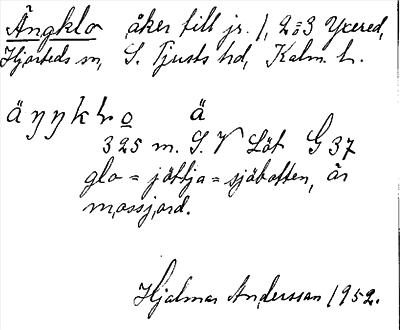 Ängklo åker till jr. 1, 2 o 3 Yxered,
Hjorteds sn, S. Tjusts hd, Kalm. l.
äŋŋkḷo ä
325 m. S. V Löt G 37
glo = jöttja = sjöbotten, är
mossjord.
Hjalmar Andersson 1952.